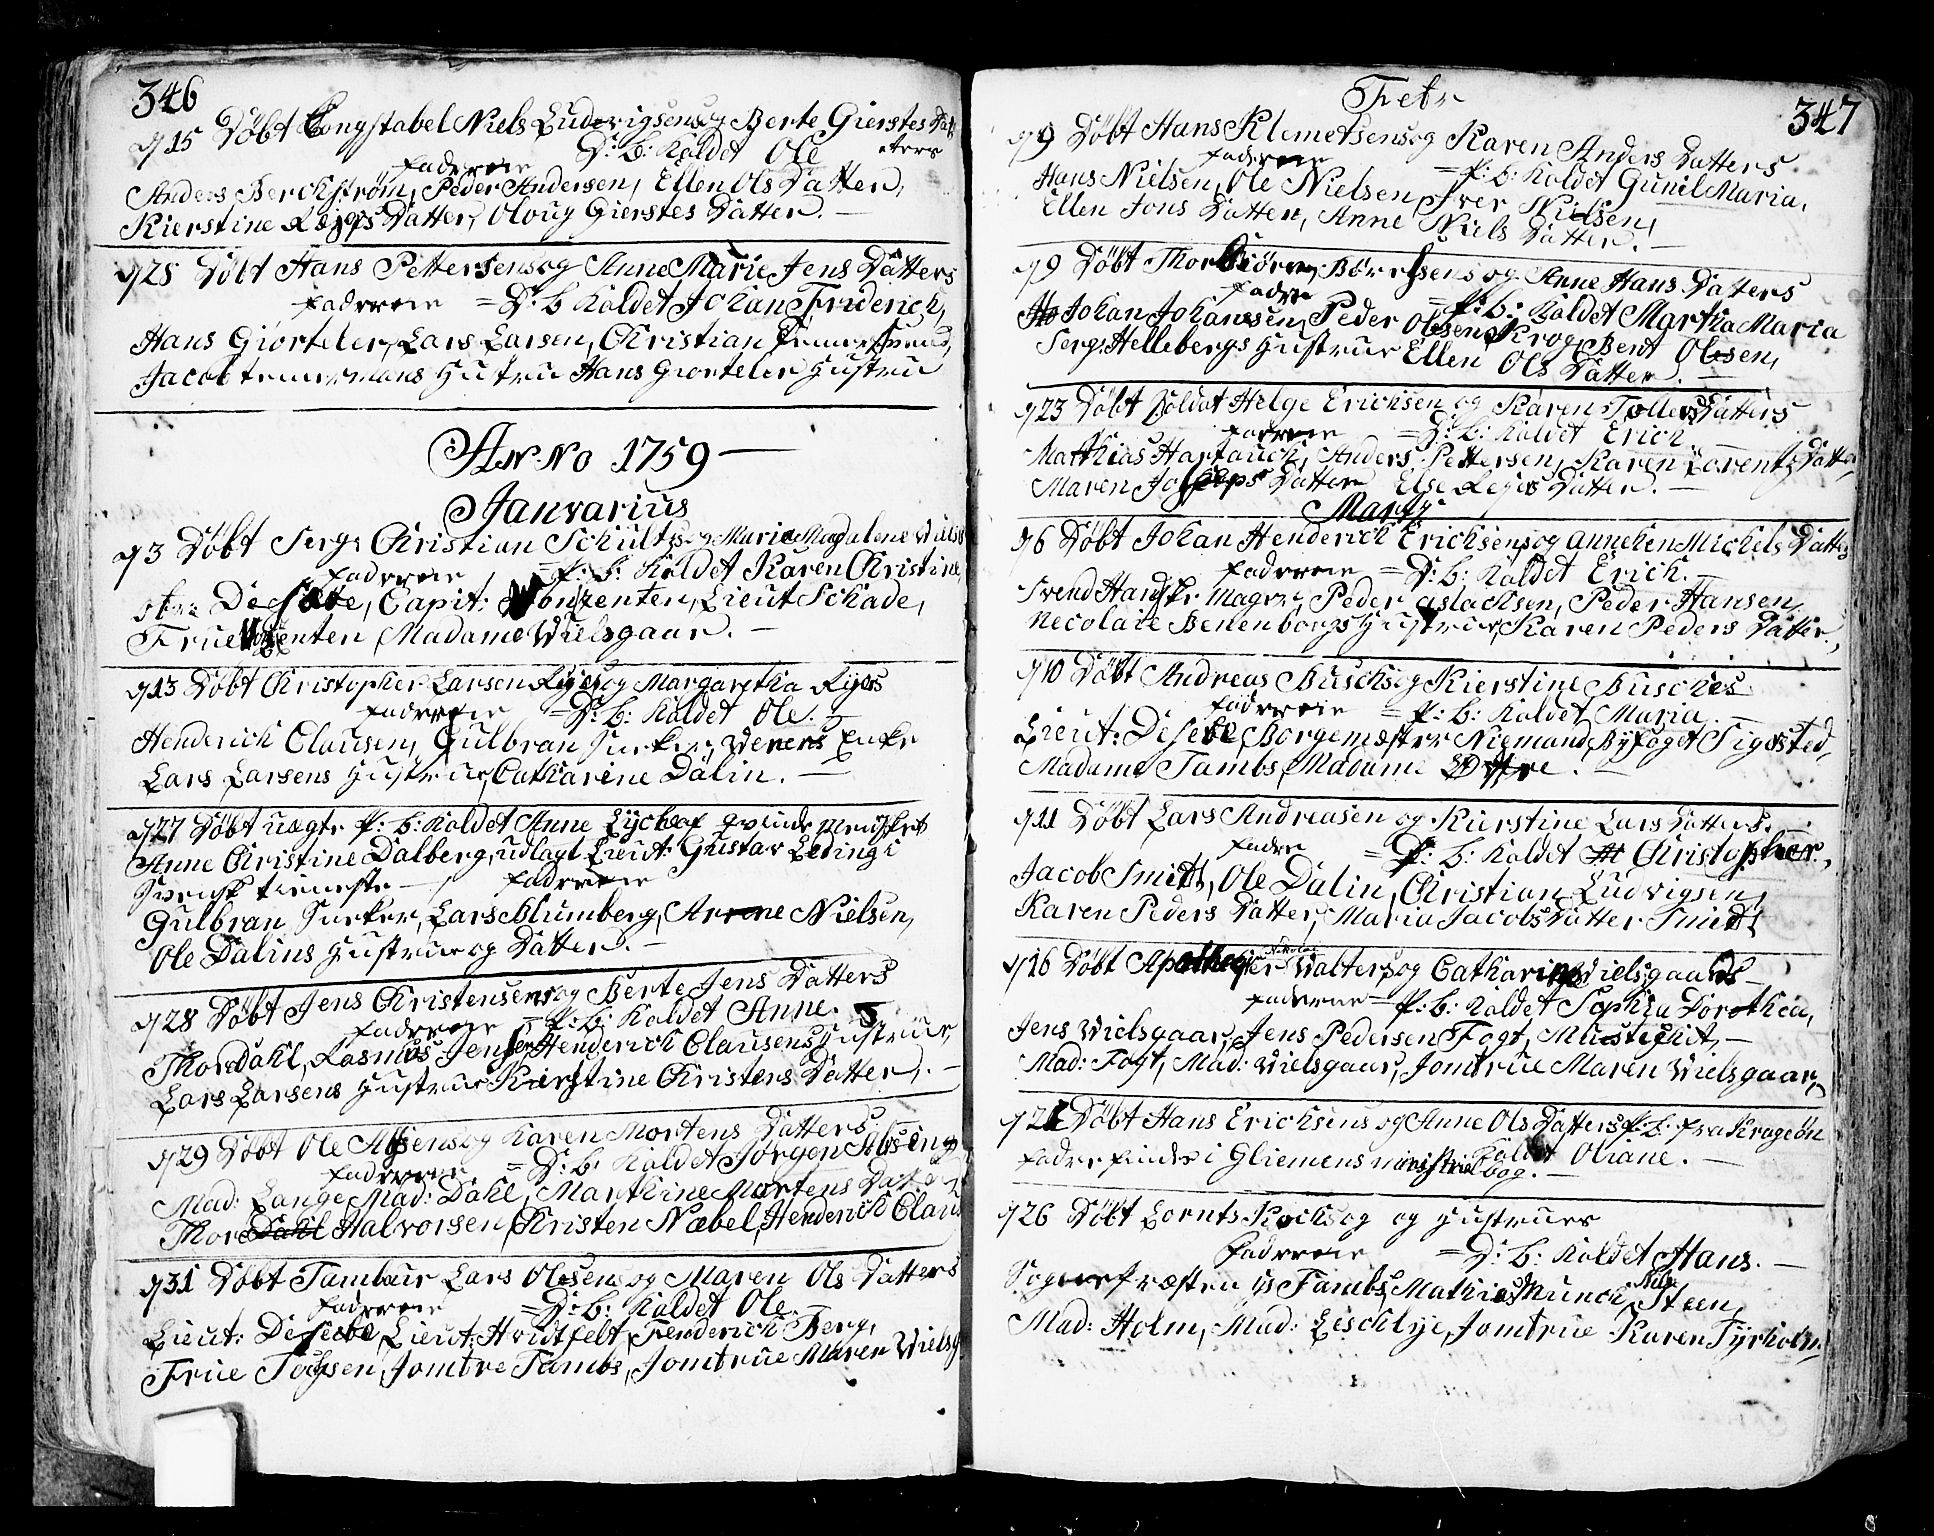 346
15 Døbt Niels Ludevigsens og Berte Gierstes Dat
ters
Fadderne D: b: Kaldet Ole
Anders Berchstrøm, Peder Andersen, Ellen Ols Datter,
Kierstine Datter, Oloug Gierstes Datter. —
28 Døbt Hans Pettersens og Anne Marie Jens Datters
Fadderne = D: b Kaldet Johan Friderich,
Hans Giørteler, Lars Larsen, Christian
Jacob Hustru Hans Giørteler Hustru
Anno 1759 —
Janvarius
3 Døbt Serg: Christian Schults og Marie Magdalene
Fadderne = P: b: Kaldet Karen Christine
Capit: Lieut Schade,
Frue Madame Vielsgaar. —
13 Døbt Christopher Larsen Ryes og Margaretha Ryes
Fadderne = D: b: Kaldet Ole.
Henderich Clausen, Gulbran Enke
Lars Larsens Hustrue, Catharine Dalin. —
27 Døbt uægte P: b: Kaldet Anne af qvinde mensket
Anne Christine Dalberg, udlagt Lieut: Gustav i
Svensk tieneste — Fadderne
Gulbran Lars Blumberg, Nielsen,
Ole Dalins Hustrue og Datter. —
28 Døbt Jens Christensens og Berte Jens Datters
Fadderne = P: b: Kaldet Anne.
Thor Dahl, Rasmus Jensen, Henderich Clausens Hustrue,
Lars Larsens Hustrue Kierstine Christens Datter, —
29 Døbt Ole og Karen Mortens Datters
Fadderne = D: b: Kaldet Jørgen
Mad: Lange, Mad: Dahl, Marthine Mortens Dat
Thor Halvorsen, Christen Næbel, Henderich Claus
31 Døbt Tambur Lars Olesen og Maren Ols Datters
Fadderne = D: b: Kaldet Ole.
Lieut: Lieut: Hvidtfelt, Fenderich Berg,
Frue Jomfre Tambs, Jomfrue Maren Vielsg
Febr
347
9 Døbt Hans Klemetsens og Karen Anders Datters
Fadderne = P: b: Kaldet Gunil Maria,
Hans Nielsen, Ole Nielsen, Iver Nielsen,
Ellen Jons Datter, Anne Niels Datter. —
9 Døbt Thorbiørn og Anne Hans Datters
Faddere = P: b: Kaldet Martha Maria
Johan Johansen, Peder Olesen Krog, Bent Olesen,
Serg: Hellebergs Hustrue Ellen Ols Datter. —
23 Døbt Soldat Helge Erichsen og Karen Tollers Datters
Fadderne = D: b: Kaldet Erich
Mathias Anders Pettersen, Karen Lorents Datter,
Maren Josephs Datter Else Datter. —
Marty
6 Døbt Johan Henderich Erichsens og Anneken Michels Datters
Fadderne = D: b: Kaldet Erich.
Svend Handske mager, Peder Aslachsen, Peder Hansen,
Necolaie Benenborgs Hustrue, Karen Peders Datter,
10 Døbt Andreas Buschs og Kierstine Busches
Fadderne = P: b: Kaldet Maria
Lieut: Borgemæster Niemand, Byfoget Sigested,
Madame Tambs, Madame
11 Døbt Lars Andreasen og Kierstine Lars Datters. —
Faddre = P: b: Kaldet Christopher,
Jacob Smidt, Ole Dalin, Christian Ludvigsen,
Karen Peders Datter, Maria Jacobs Datter Smidt
16 Døbt Apotheger Walters og Catharine Vielsgaards
Fadderne = P: b: Kaldet Sophia Dorothea,
Jens Vielsgaar, Jens Pedersen Fogt, —
Mad: Fogt, Mad: Vielsgaar, Jomfrue Maren Vielsgaar,
Døbt Hans Erichsens og Anne Ols Datters P: b: fra Kragerøn
Kaldet Oliane. —
Faddre findes i Gliemens ministrial bog. —
26 Døbt Lornts Kochs og og Hustrues
Fadderne = D: b: Kaldet Hans. —
Sogne Præsten Tambs, Mathias Munch, Steen,
Mad: Holm, Mad: Jomfrue Karen Tyrholm,